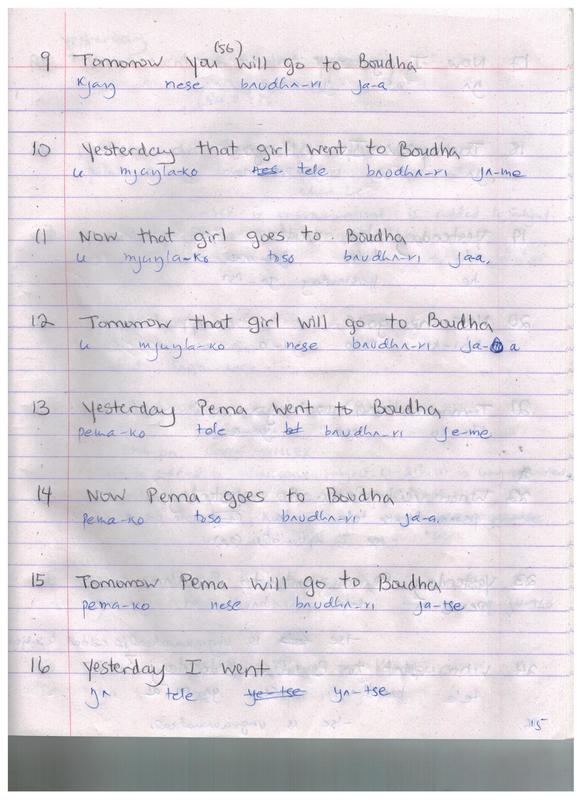 (56)
9 Tomorrow you will go to Boudha
kjaŋ nese bʌudhʌ-ri ja-a
10 Yesterday that girl went to Boudha
u mjuŋla-ko tele bʌudhʌ-ri jʌ-me
11 Now that girl goes to Boudha
u mjuŋla-ko toso bʌudhʌ-ri ja-a.
12 Tomorrow that girl will go to Boudha
u mjuŋla-ko nese bʌudhʌ-ri ja-a
13 Yesterday Pema went to Boudha
pema-ko tele bʌudhʌ-ri je-me
14 Now Pema goes to Boudha
pema-ko toso bʌudhʌ-ri ja-a.
15 Tomorrow Pema will go to Boudha
pema-ko nese bʌudhʌ-ri ja-tse
16 Yesterday I went
ŋʌ tele ye-tse yʌ-tse
15